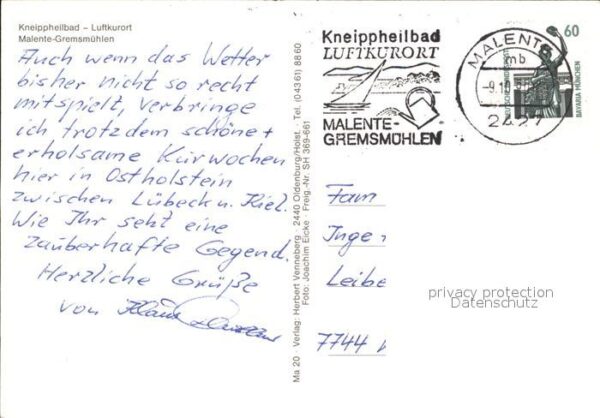 Kneippheilbad – Luftkurort
Malente-Gremsmühlen
Auch wenn das Wetter
bisher nicht so recht
mitspielt, verbringe
ich trotzdem schöne +
erholsame Kurwochen
hier in Ostholstein
zwischen Lübeck u. Kiel.
Wie Ihr seht eine
zauberhafte Gegend.
Herzliche Grüße
von Klaus
Ma 20 · Verlag: Herbert Venneberg · 2440 Oldenburg/Holst. · Tel. (04361) 8860
Foto: Joachim Eicke · Freig.-Nr. SH 369-661
Kneippheilbad
LUFTKURORT
MALENTE-
GREMSMÜHLEN
MALENTE
mb
2427
60
DEUTSCHE BUNDESPOST
BAVARIA MÜNCHEN
Fam
Inge
Leibe
7744
privacy protection
Datenschutz